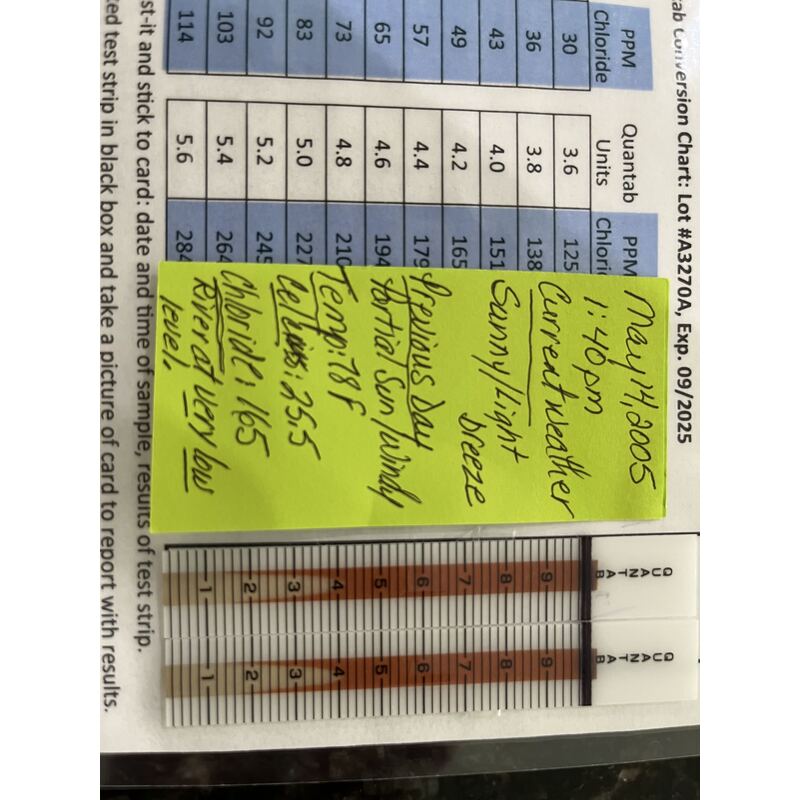 tab Conversion Chart: Lot #A3270A, Exp. 09/2025
PPM Chloride
30
36
43
49
57
65
73
83
92
103
114
Quantab Units
3.6
3.8
4.0
4.2
4.4
4.6
4.8
5.0
5.2
5.4
5.6
PPM
Chlori
125
138
151
165
179
194
210
227
245
264
284
May 14, 2005
1:40 pm
Current weather
Sunny/Light
breeze
Previous Day
Partial Sun/Windy
Temp: 78 F
Celcius: 25.5
Chloride: 165
River at very low
level.
QUANTAB
1 2 3 4 5 6 7 8 9
QUANTAB
1 2 3 4 5 6 7 8 9
st-it and stick to card: date and time of sample, results of test strip.
ed test strip in black box and take a picture of card to report with results.